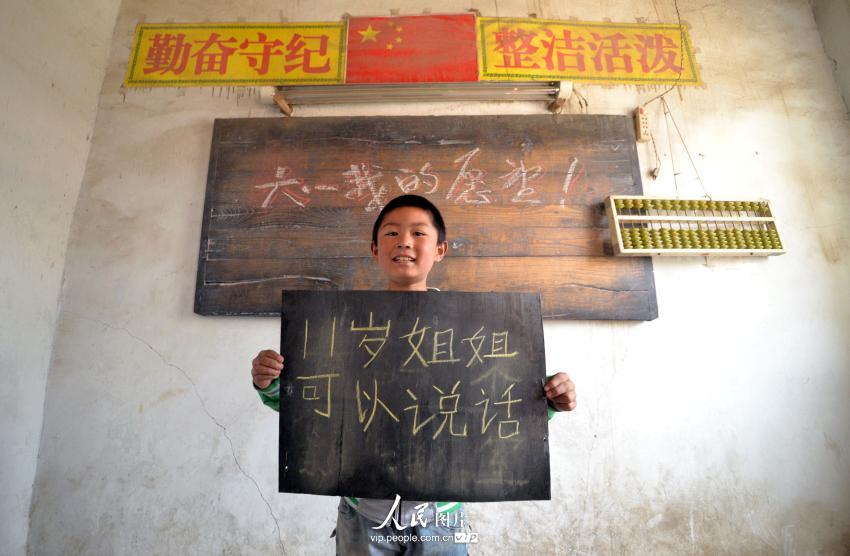 勤奋守纪 整洁活泼
六一我的愿望！
11岁姐姐
可以说话
人民图片
vip.people.com.cn VIP